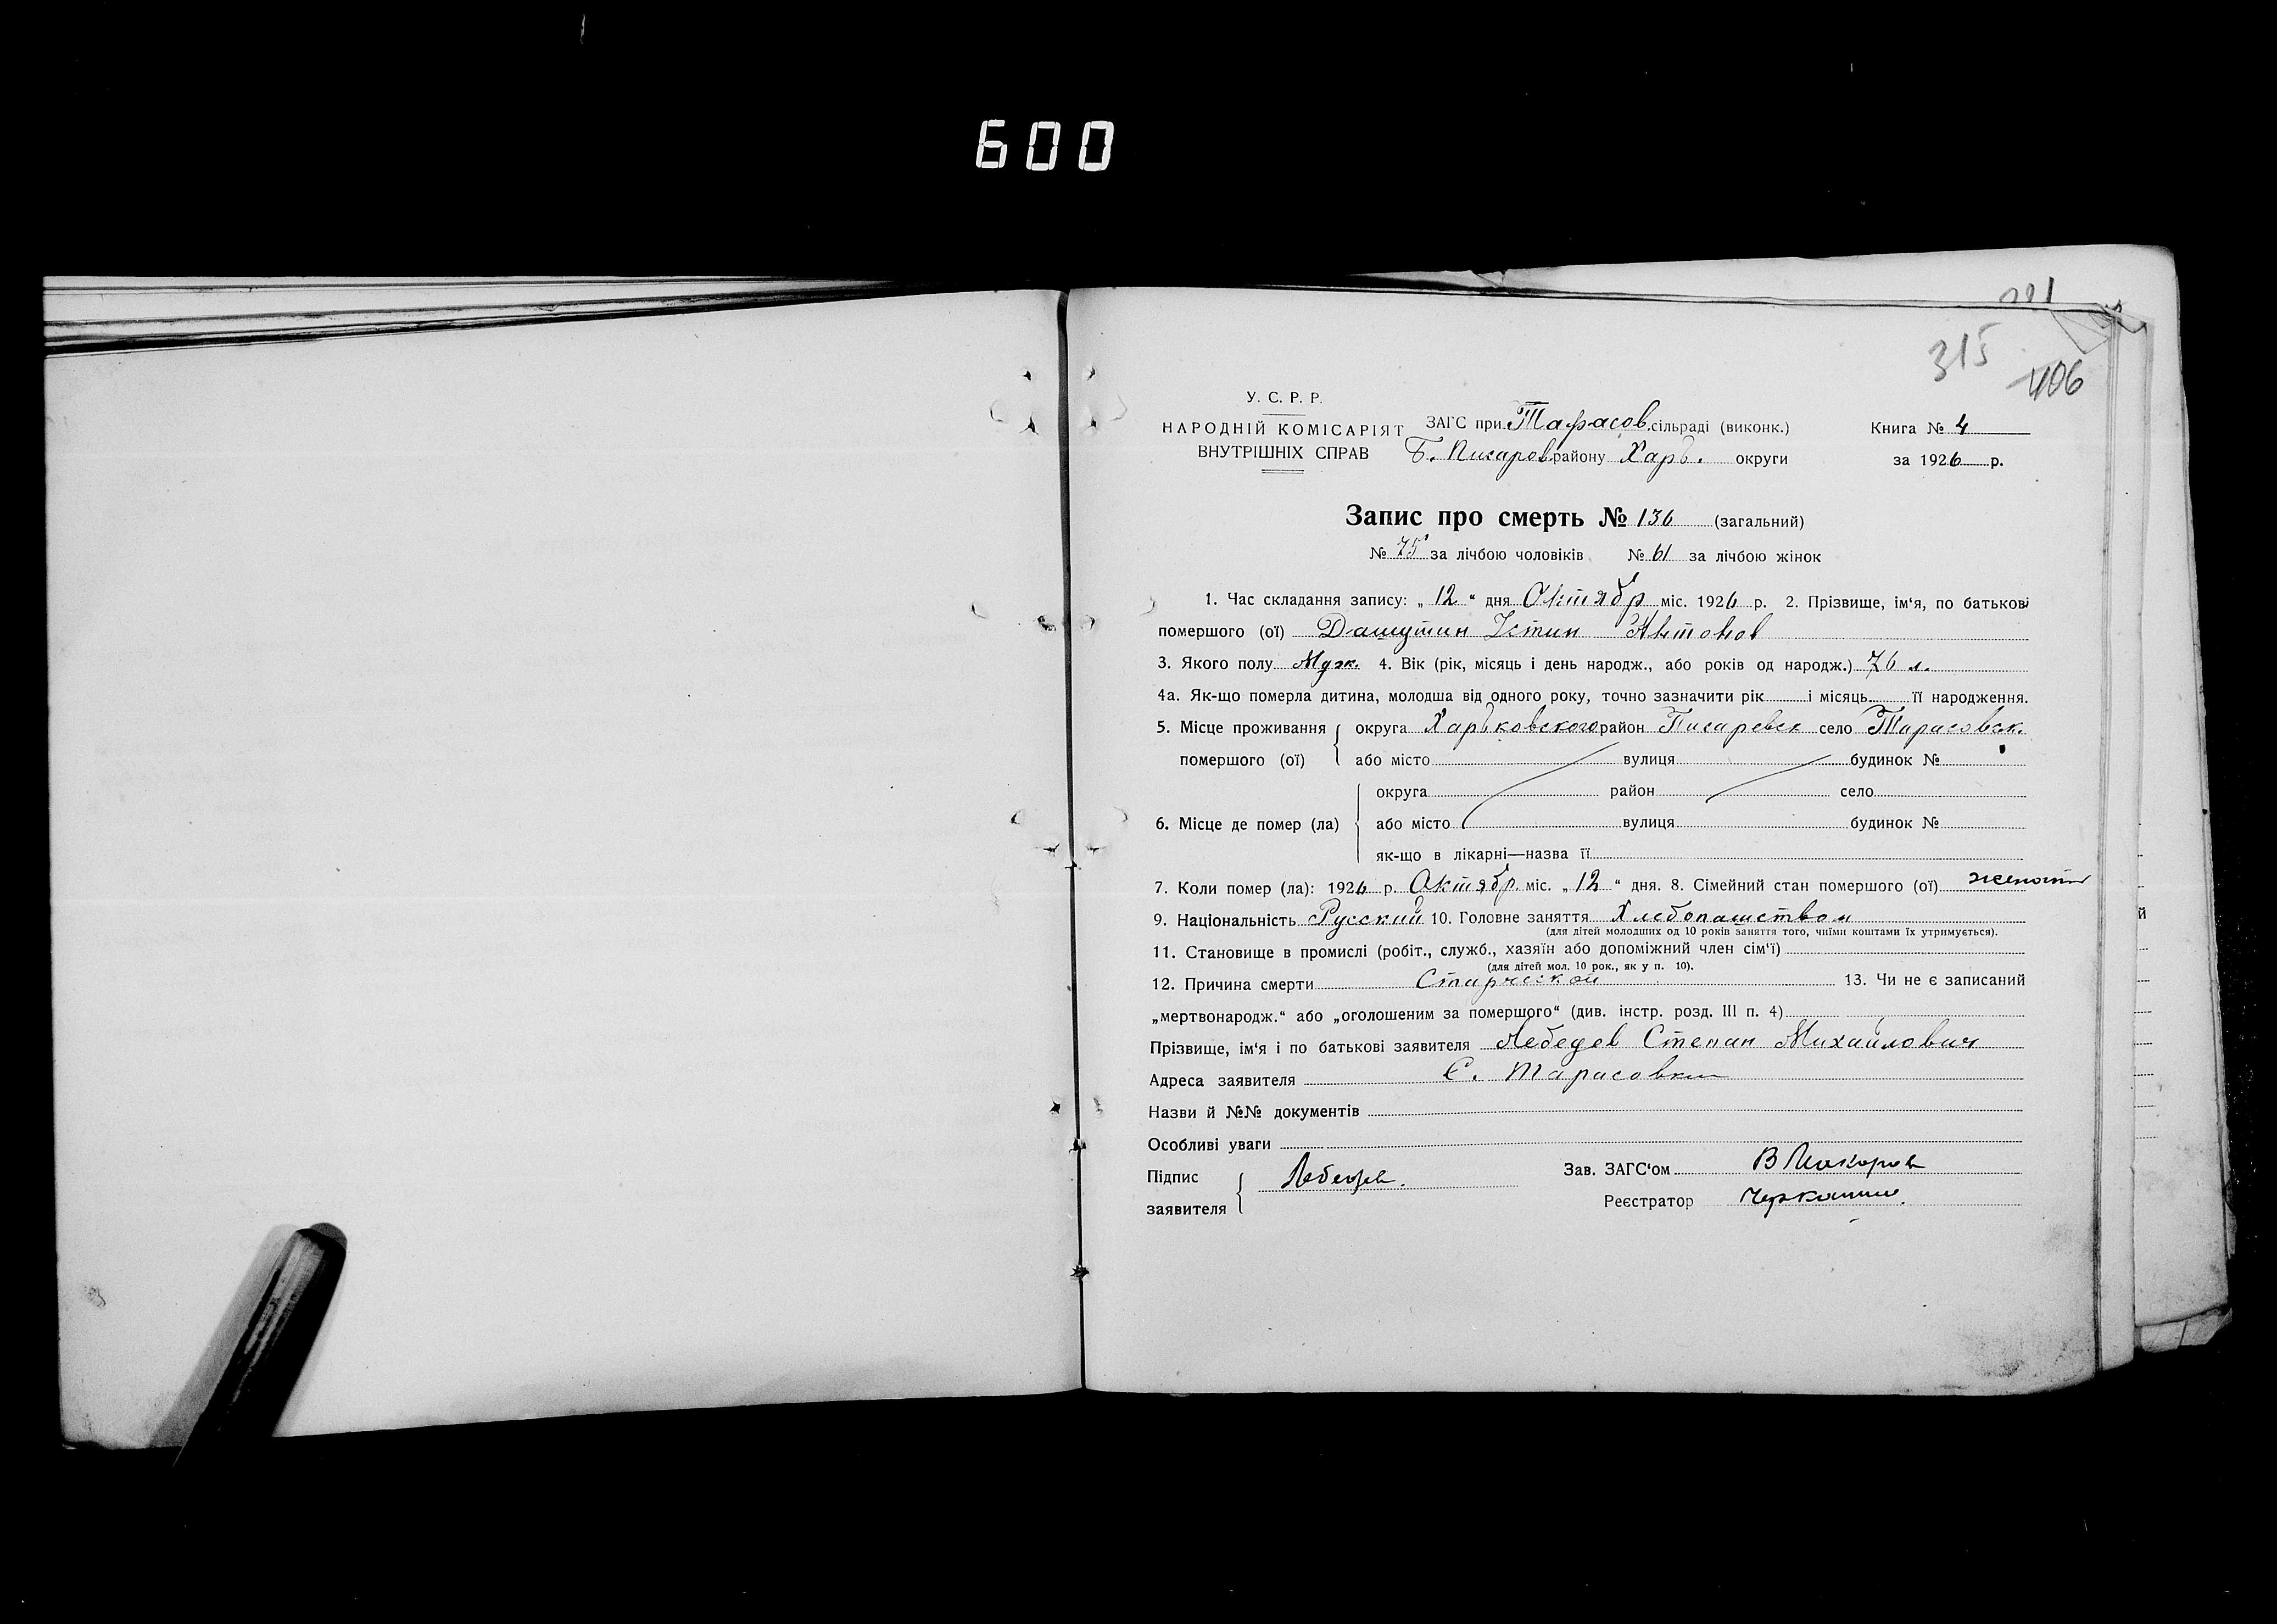 600
315
406
У. С. Р. Р.
НАРОДНІЙ КОМІСАРІЯТ
ВНУТРІШНІХ СПРАВ
ЗАГС при Тарасов. сільраді (виконк.)
Б. Писаров району Харь. округи
Книга № 4
за 1926 р.
Запис про смерть № 136 (загальний)
№ 75 за лічбою чоловіків № 61 за лічбою жінок
1. Час складання запису: „ 12 “ дня Октябр міс. 1926 р. 2. Прізвище, ім‘я, по батькові
помершого (ої) Дашутин Устин Антонов
3. Якого полу Муж. 4. Вік (рік, місяць і день народж., або років од народж.) 76 л.
4а. Як-що померла дитина, молодша від одного року, точно зазначити рік і місяць її народження.
5. Місце проживання помершого (ої) округа Харьковского район Писаревск село Тарасовск.
або місто вулиця будинок №
6. Місце де помер (ла) округа район село
або місто вулиця будинок №
як-що в лікарні—назва її
7. Коли помер (ла): 1926 р. Октябр. міс. „ 12 “ дня. 8. Сімейний стан помершого (ої) женат
9. Національність Русский 10. Головне заняття Хлебопашством
(для дітей молодших од 10 років заняття того, чиїми коштами їх утримується).
11. Становище в промислі (робіт., служб., хазяїн або допоміжний член сім‘ї)
(для дітей мол. 10 рок., як у п. 10).
12. Причина смерти Старческой 13. Чи не є записаний
„мертвонародж.“ або „оголошеним за помершого“ (див. інстр. розд. III п. 4)
Прізвище, ім‘я і по батькові заявителя Лебедев Степан Михайлович
Адреса заявителя С. Тарасовки
Назви й №№ документів
Особливі уваги
Підпис заявителя Лебедев.
Зав. ЗАГС‘ом
Реєстратор